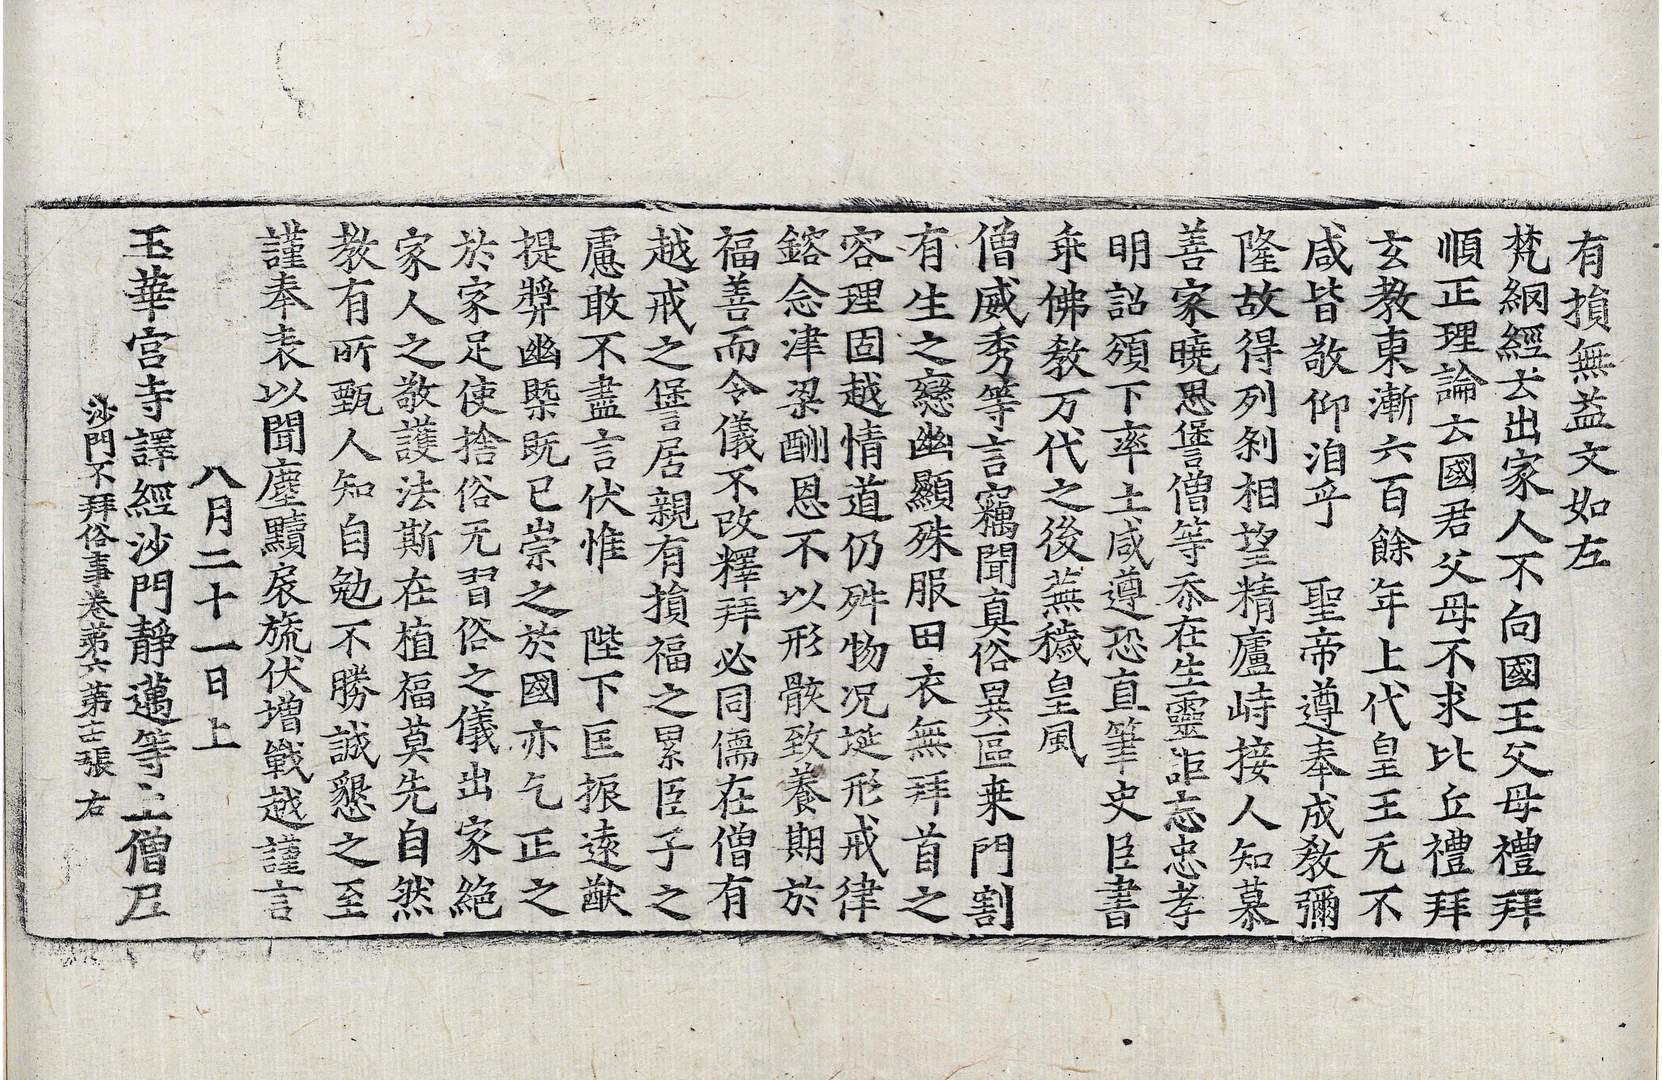 有損無益文如左
梵網經云出家人不向國王父母禮拜
順正理論云國君父母不求比丘禮拜
玄教東漸六百餘年上代皇王无不
咸皆敬仰洎乎　聖帝遵奉成教彌
隆故得列剎相望精廬峙接人知慕
善家曉思諐僧等忝在生靈詎忘忠孝
明詔頒下率土咸遵恐直筆史臣書
乖佛教万代之後蕪穢皇風
僧威秀等言竊聞真俗異區桒門割
有生之戀幽顯殊服田衣無拜首之
容理固越情道仍舛物况挻形戒律
鎔念津梁酬恩不以形骸致養期於
福善而令儀不改釋拜必同儒在僧有
越戒之諐居親有損福之累臣子之
慮敢不盡言伏惟　陛下匡振遠猷
提獎幽槩既已崇之於國亦乞正之
於家足使捨俗无習俗之儀出家絶
家人之敬護法斯在植福莫先自然
教有所甄人知自勉不勝誠懇之至
謹奉表以聞塵黷扆旒伏增戰越謹言
八月二十一日上
玉華宮寺譯經沙門靜邁等上僧尼
沙門不拜俗事卷第六第十二張　右